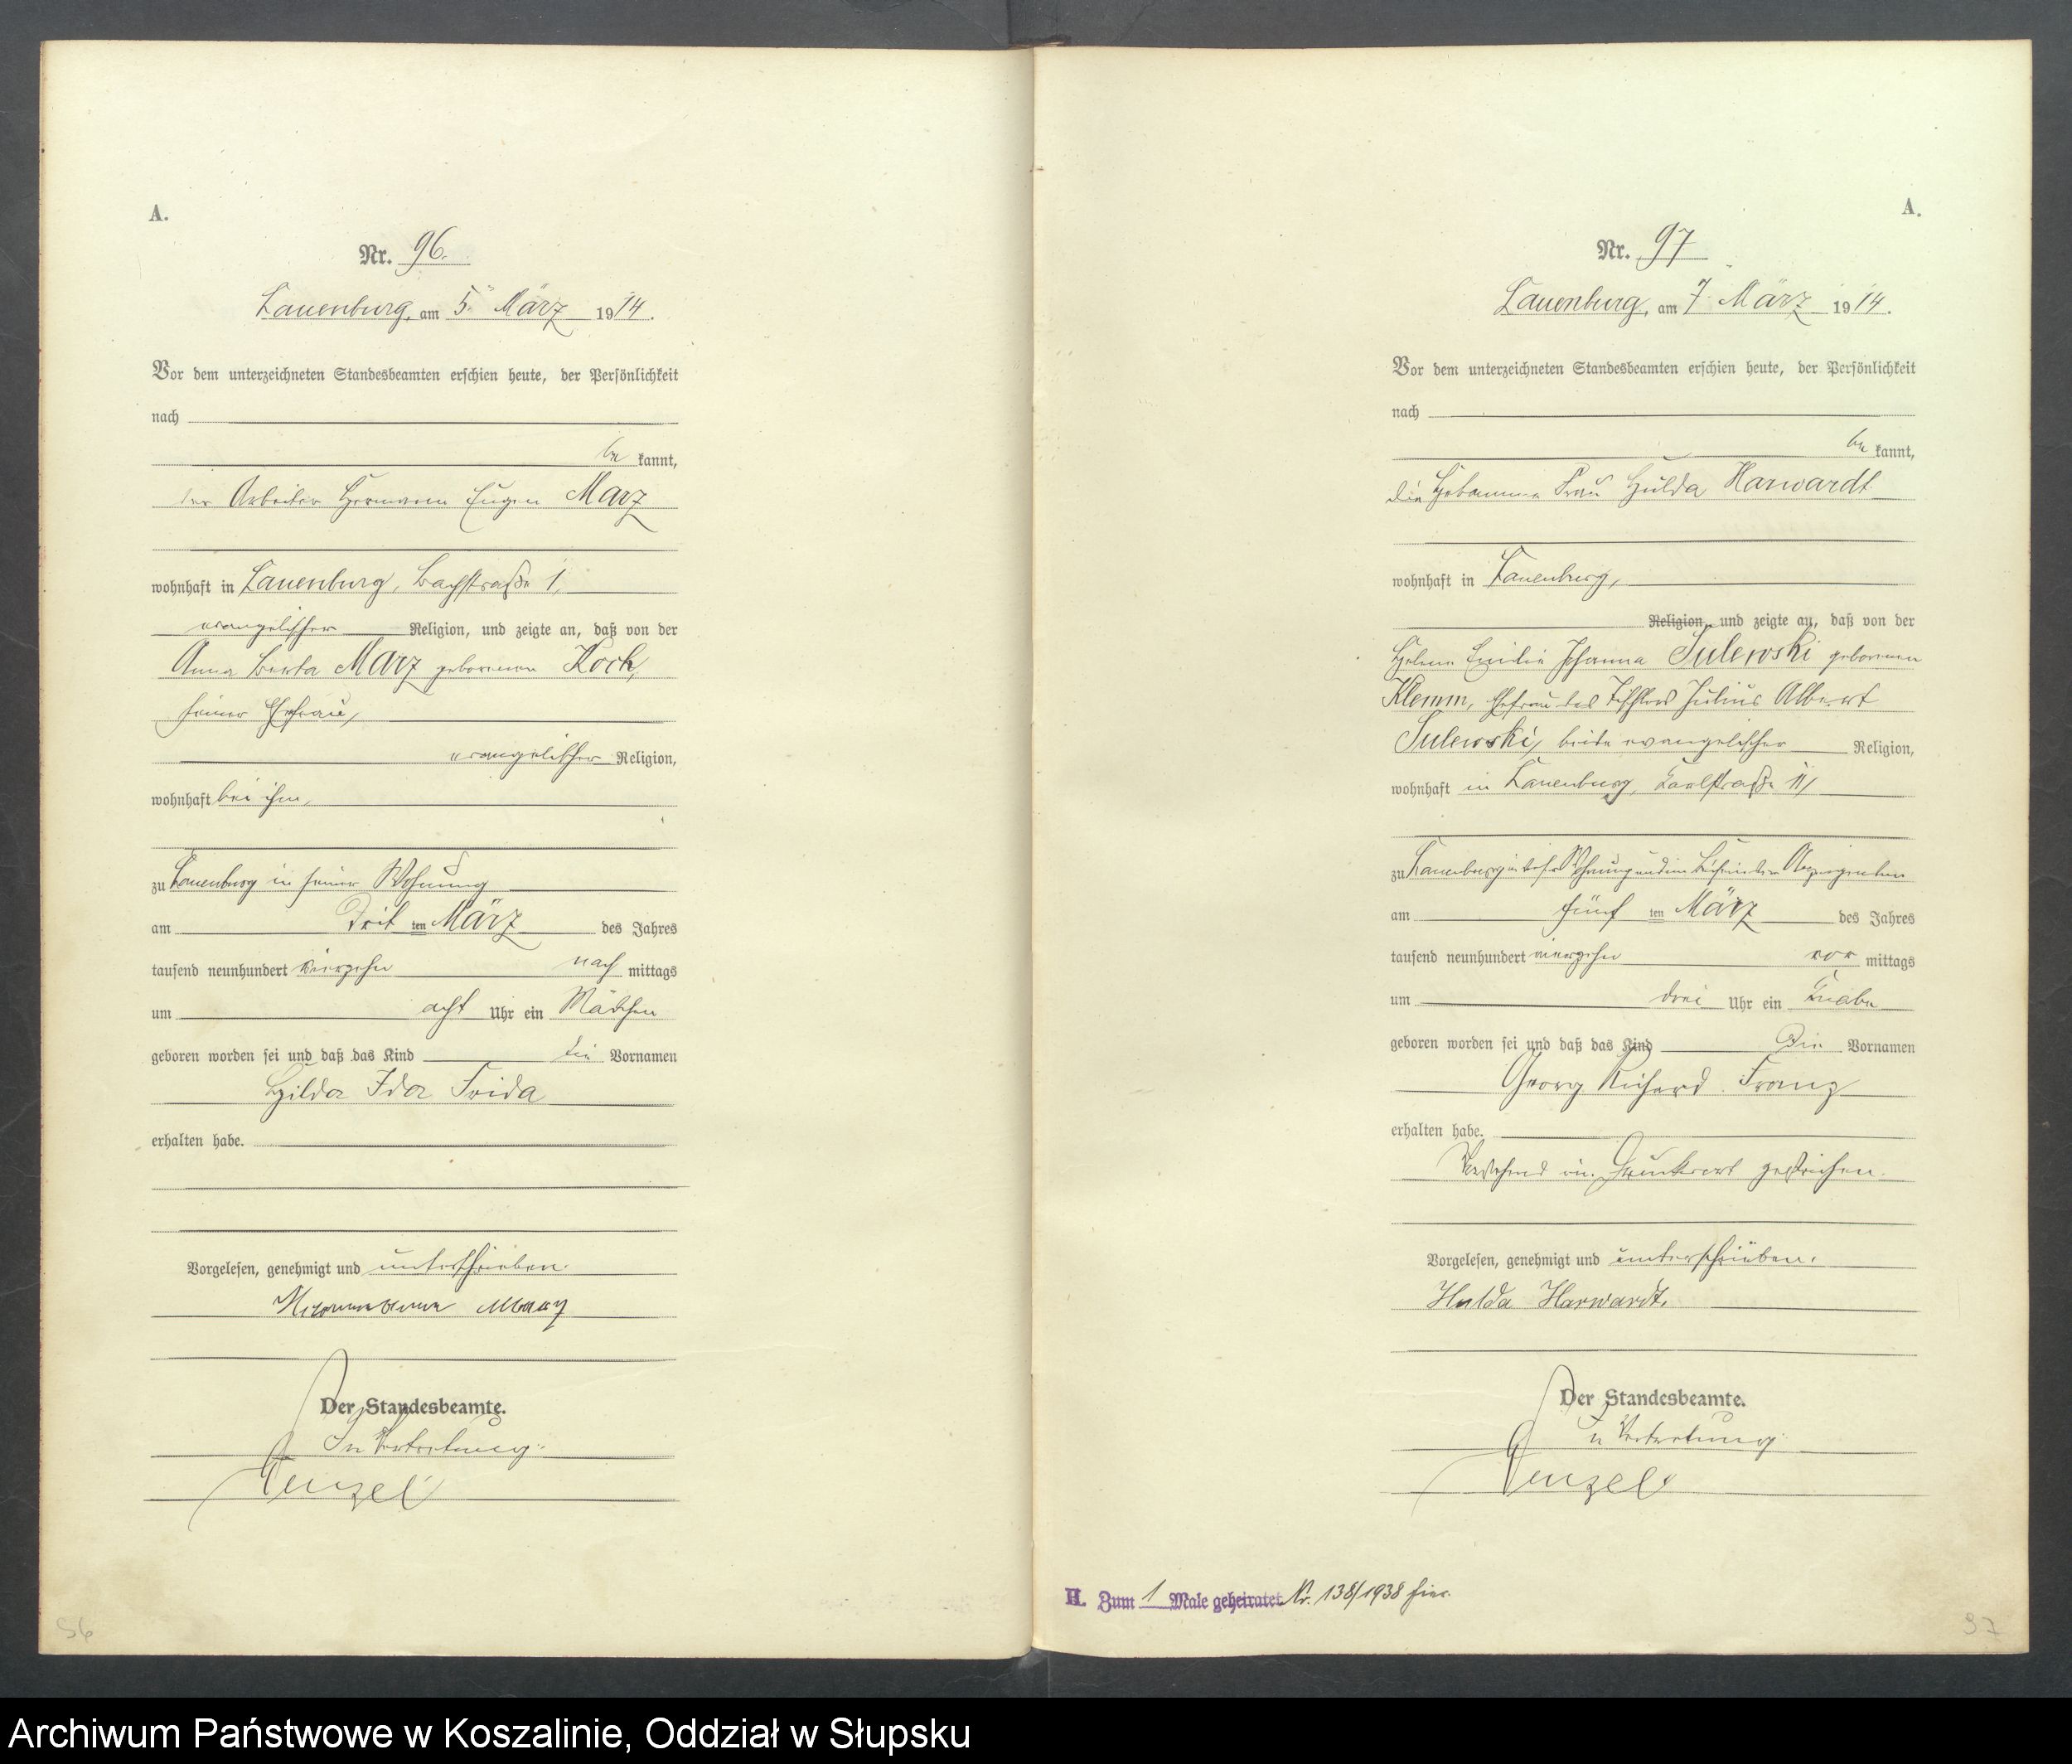 A.
Nr. 96.
Lauenburg, am 5. März 1914.
Vor dem unterzeichneten Standesbeamten erschien heute, der Persönlichkeit
nach
be kannt,
der Arbeiter Hermann Eugen Marz
wohnhaft in Lauenburg, Bachstraße 1,
evangelischer Religion, und zeigte an, daß von der
Anna Berta Marz geborenen Koch,
seiner Ehefrau,
evangelischer Religion,
wohnhaft bei ihm,
zu Lauenburg in seiner Wohnung
am drit ten März des Jahres
tausend neunhundert vierzehn nach mittags
um acht Uhr ein Mädchen
geboren worden sei und daß das Kind die Vornamen
Hilda Ida Frida
erhalten habe.
Vorgelesen, genehmigt und unterschrieben.
Der Standesbeamte.
In Vertretung.
Wenzel
96
A.
Nr. 97
Lauenburg, am 7. März 1914.
Vor dem unterzeichneten Standesbeamten erschien heute, der Persönlichkeit
nach
be kannt,
die Hebamme Frau Hulda Harwardt
wohnhaft in Lauenburg,
Religion, und zeigte an, daß von der
Helene Emilie Johanna Sulewski geborenen
Klemm, Ehefrau des Tischlers Julius Albert
Sulewski, beide evangelischer Religion,
wohnhaft in Lauenburg, 11,
zu Lauenburg in der Wohnung und im Beisein der Anzeigenden
am fünf ten März des Jahres
tausend neunhundert vierzehn vor mittags
um drei Uhr ein Knabe
geboren worden sei und daß das Kind die Vornamen
Georg Richard Franz
erhalten habe.
Vorstehend ein Druckwort gestrichen.
Vorgelesen, genehmigt und unterschrieben.
Hulda Harwardt.
Der Standesbeamte.
In Vertretung
Wenzel
H. Zum 1 Male geheiratet Nr. 138/1938 hier.
97
Archiwum Państwowe w Koszalinie, Oddział w Słupsku